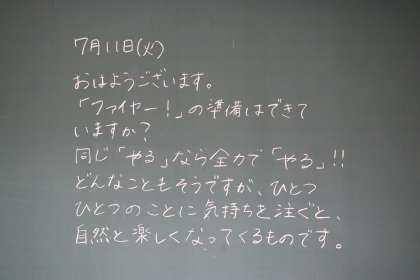 7月11日(火)
おはようございます。
「ファイヤー!」の準備はできて
いますか?
同じ「やる」なら全力で「やる」!!
どんなこともそうですが、ひとつ
ひとつのことに気持ちを注ぐと、
自然と楽しくなってくるものです。